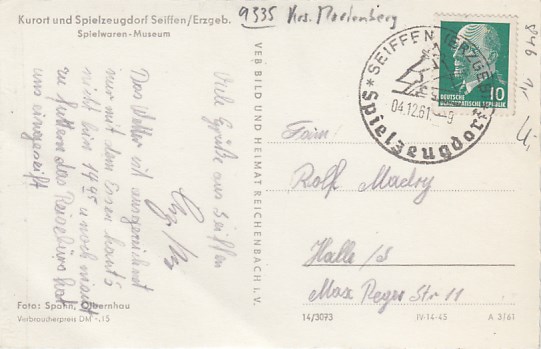 Kurort und Spielzeugdorf Seiffen/Erzgeb.
Spielwaren-Museum
9335 Krs. Marienberg
Viele Grüße aus Seiffen
Das Wetter ist ausgezeichnet
nur mit dem Essen
1945 u noch nicht
das Reisebüro hat
uns eingeseift
Foto: Spahn, Olbernhau
Verbraucherpreis DM -.15
VEB BILD UND HEIMAT REICHENBACH i. V.
SEIFFEN (ERZGEB)
04.12.61-9
Spielzeugdorf
DEUTSCHE
DEMOKRATISCHE REPUBLIK
10
Fam.
Rolf Madry
Halle/S
Max Reger Str 11
14/3073
IV-14-45
A 3/61